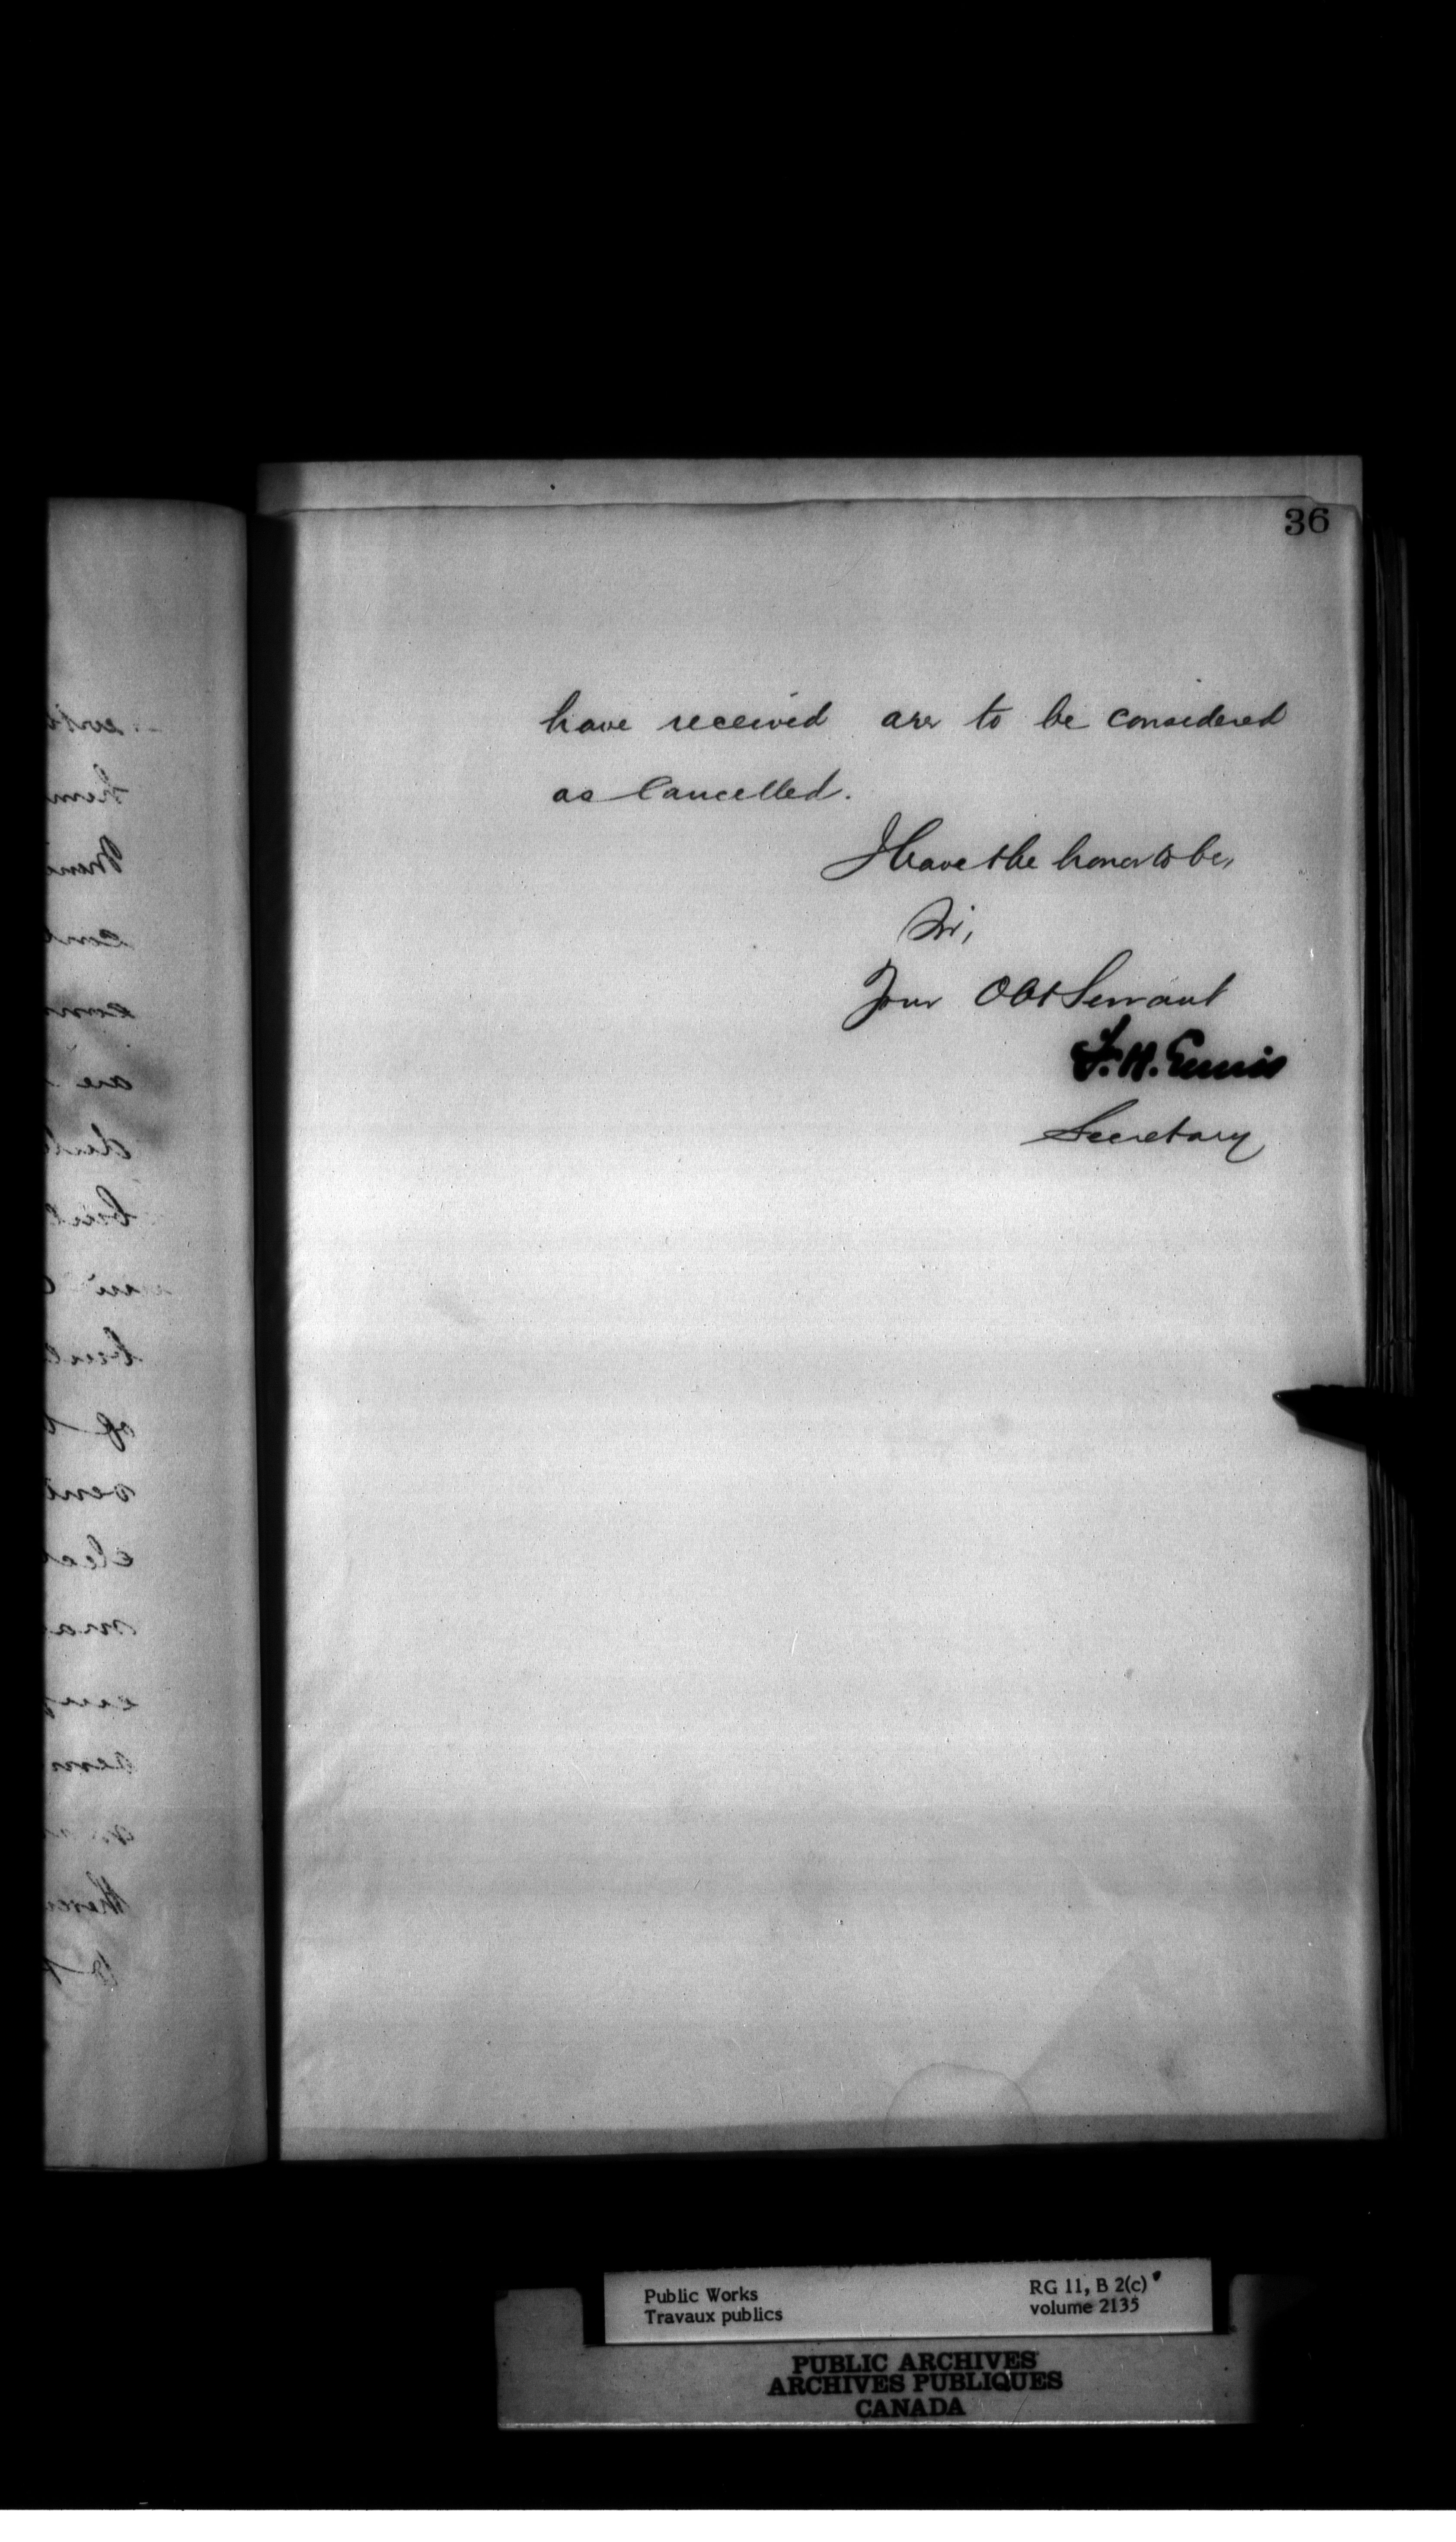 36
have received are to be considered
as Cancelled.
I have the honor to be,
Sir,
Your Obt Servant
F. H. Ennis
Secretary
Public Works
Travaux publics
RG 11, B 2(c)
volume 2135
PUBLIC ARCHIVES
ARCHIVES PUBLIQUES
CANADA